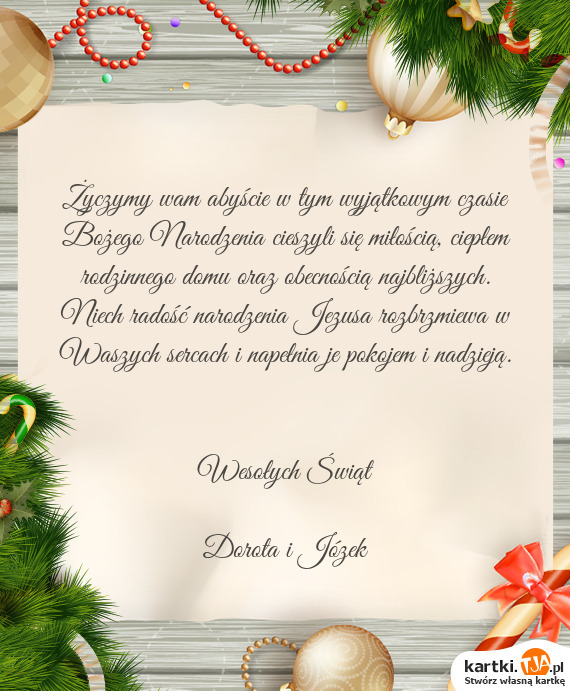 Życzymy wam abyście w tym wyjątkowym czasie
Bożego Narodzenia cieszyli się miłością, ciepłem
rodzinnego domu oraz obecnością najbliższych.
Niech radość narodzenia Jezusa rozbrzmiewa w
Waszych sercach i napełnia je pokojem i nadzieją.
Wesołych Świąt
Dorota i Józek
kartki.TJA.pl
Stwórz własną kartkę